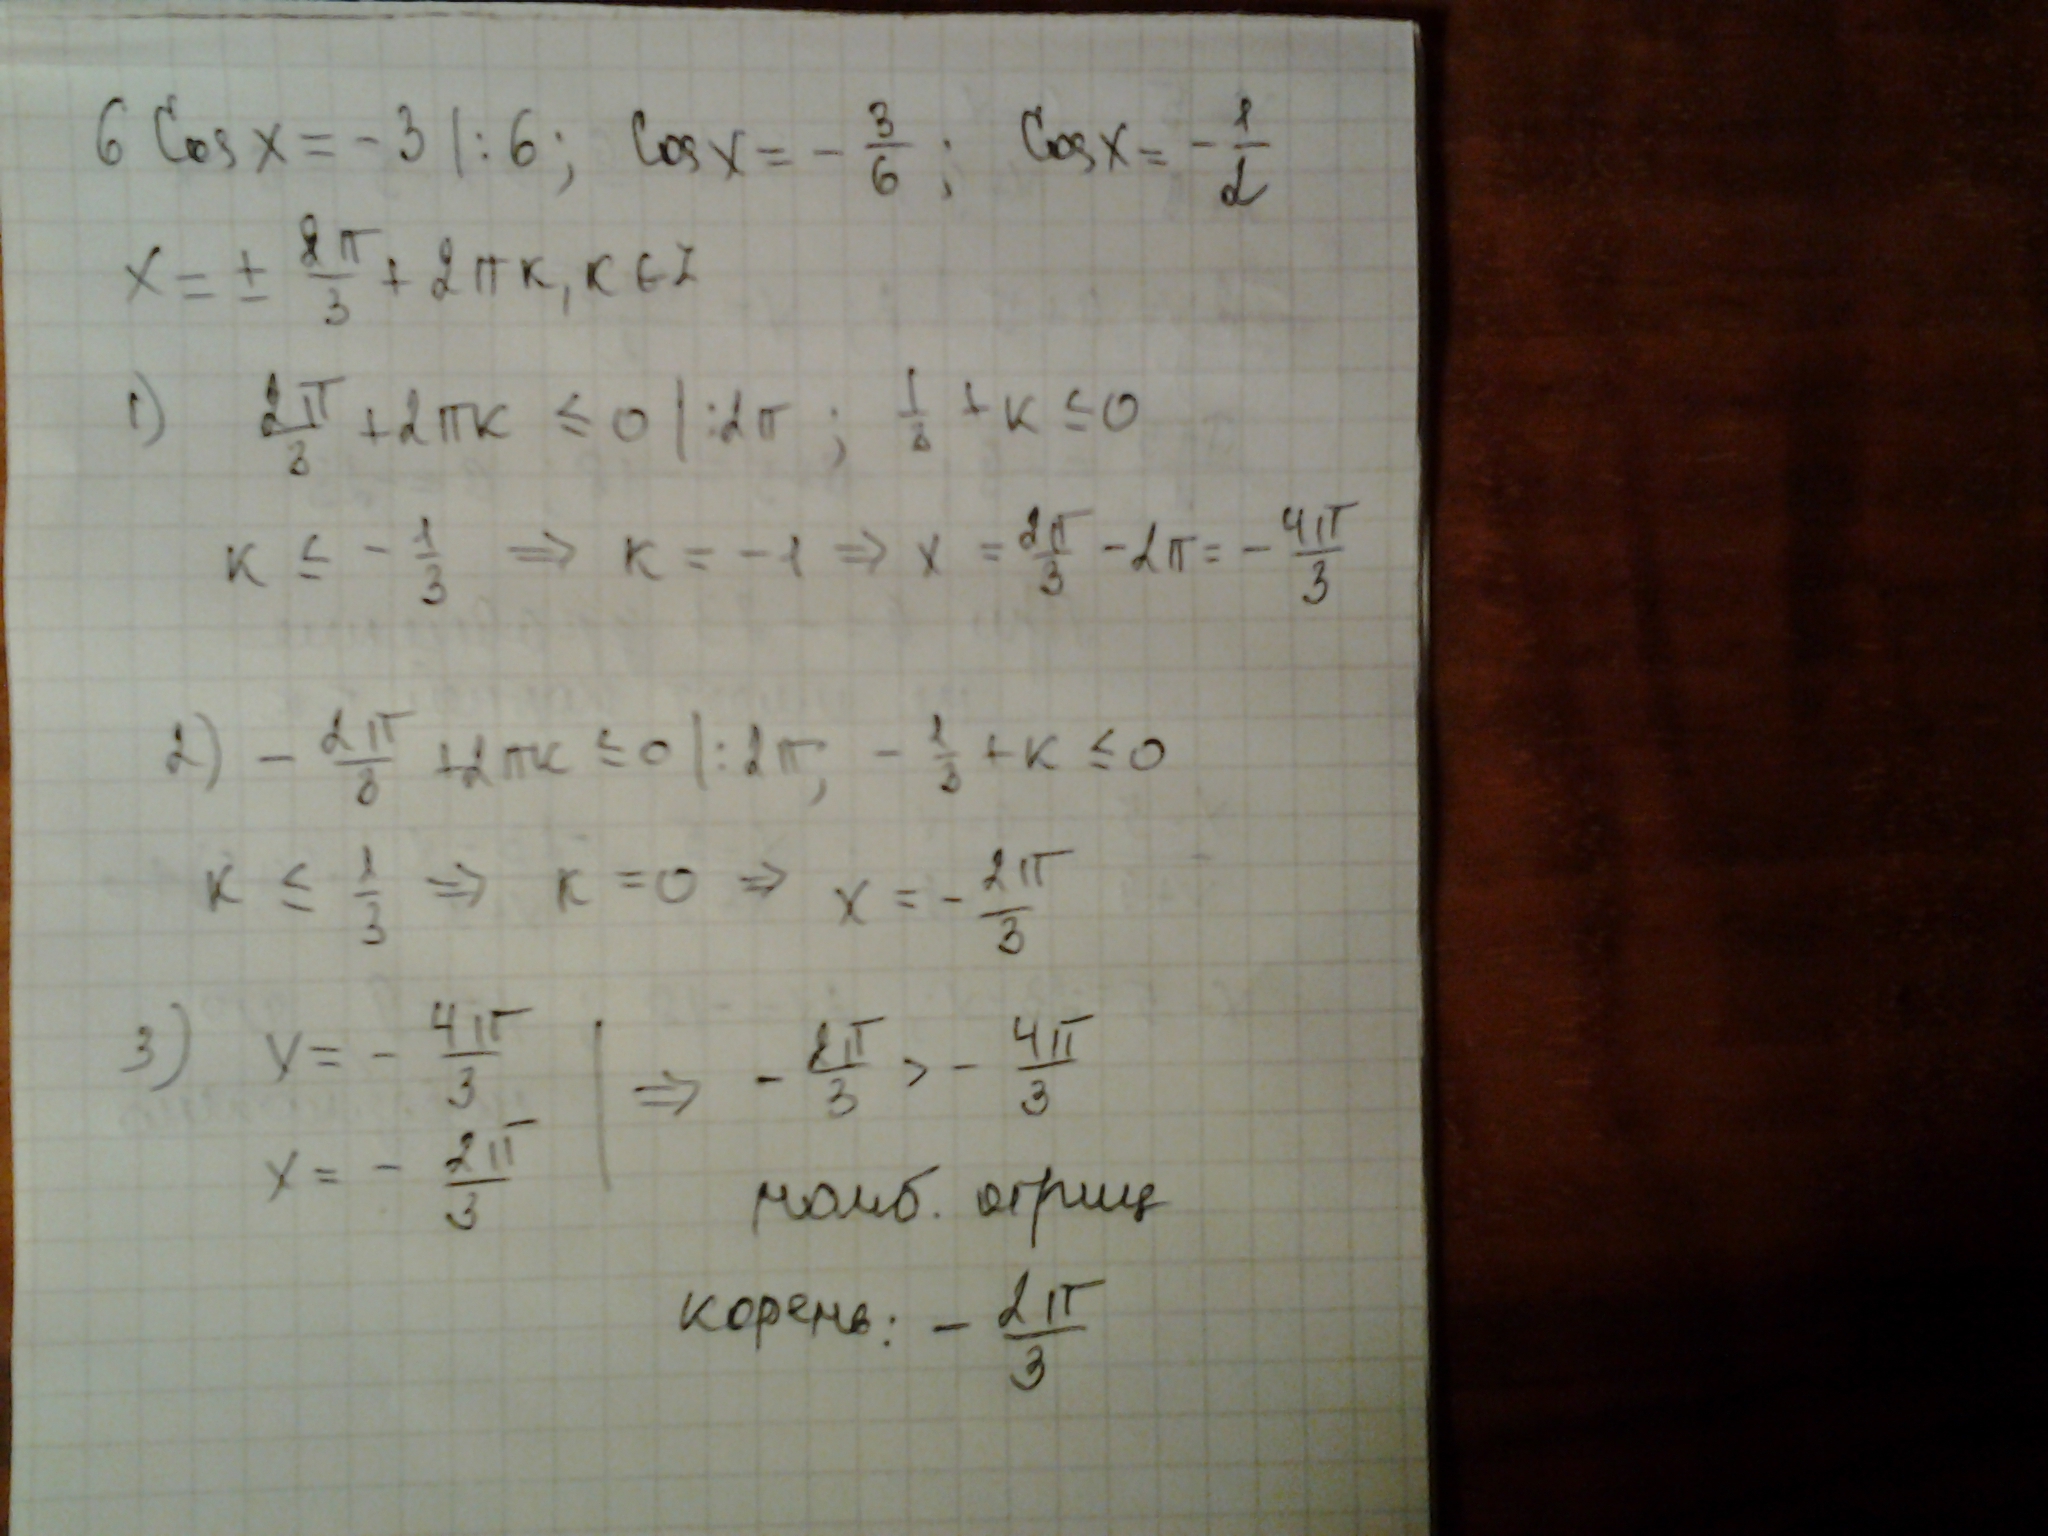 6 Cos x = -3 |:6; Cos x = - 3/6; Cos x = - 1/2
x = ± 2π/3 + 2πk, k ∈ Z
1) 2π/3 + 2πk ≤ 0 |:2π; 1/3 + k ≤ 0
k ≤ - 1/3 ⇒ k = -1 ⇒ x = 2π/3 - 2π = - 4π/3
2) - 2π/3 + 2πk ≤ 0 |:2π; - 1/3 + k ≤ 0
k ≤ 1/3 ⇒ k = 0 ⇒ x = - 2π/3
3) x = - 4π/3
x = - 2π/3 | ⇒ - 2π/3 > - 4π/3
наиб. отриц
корень: - 2π/3